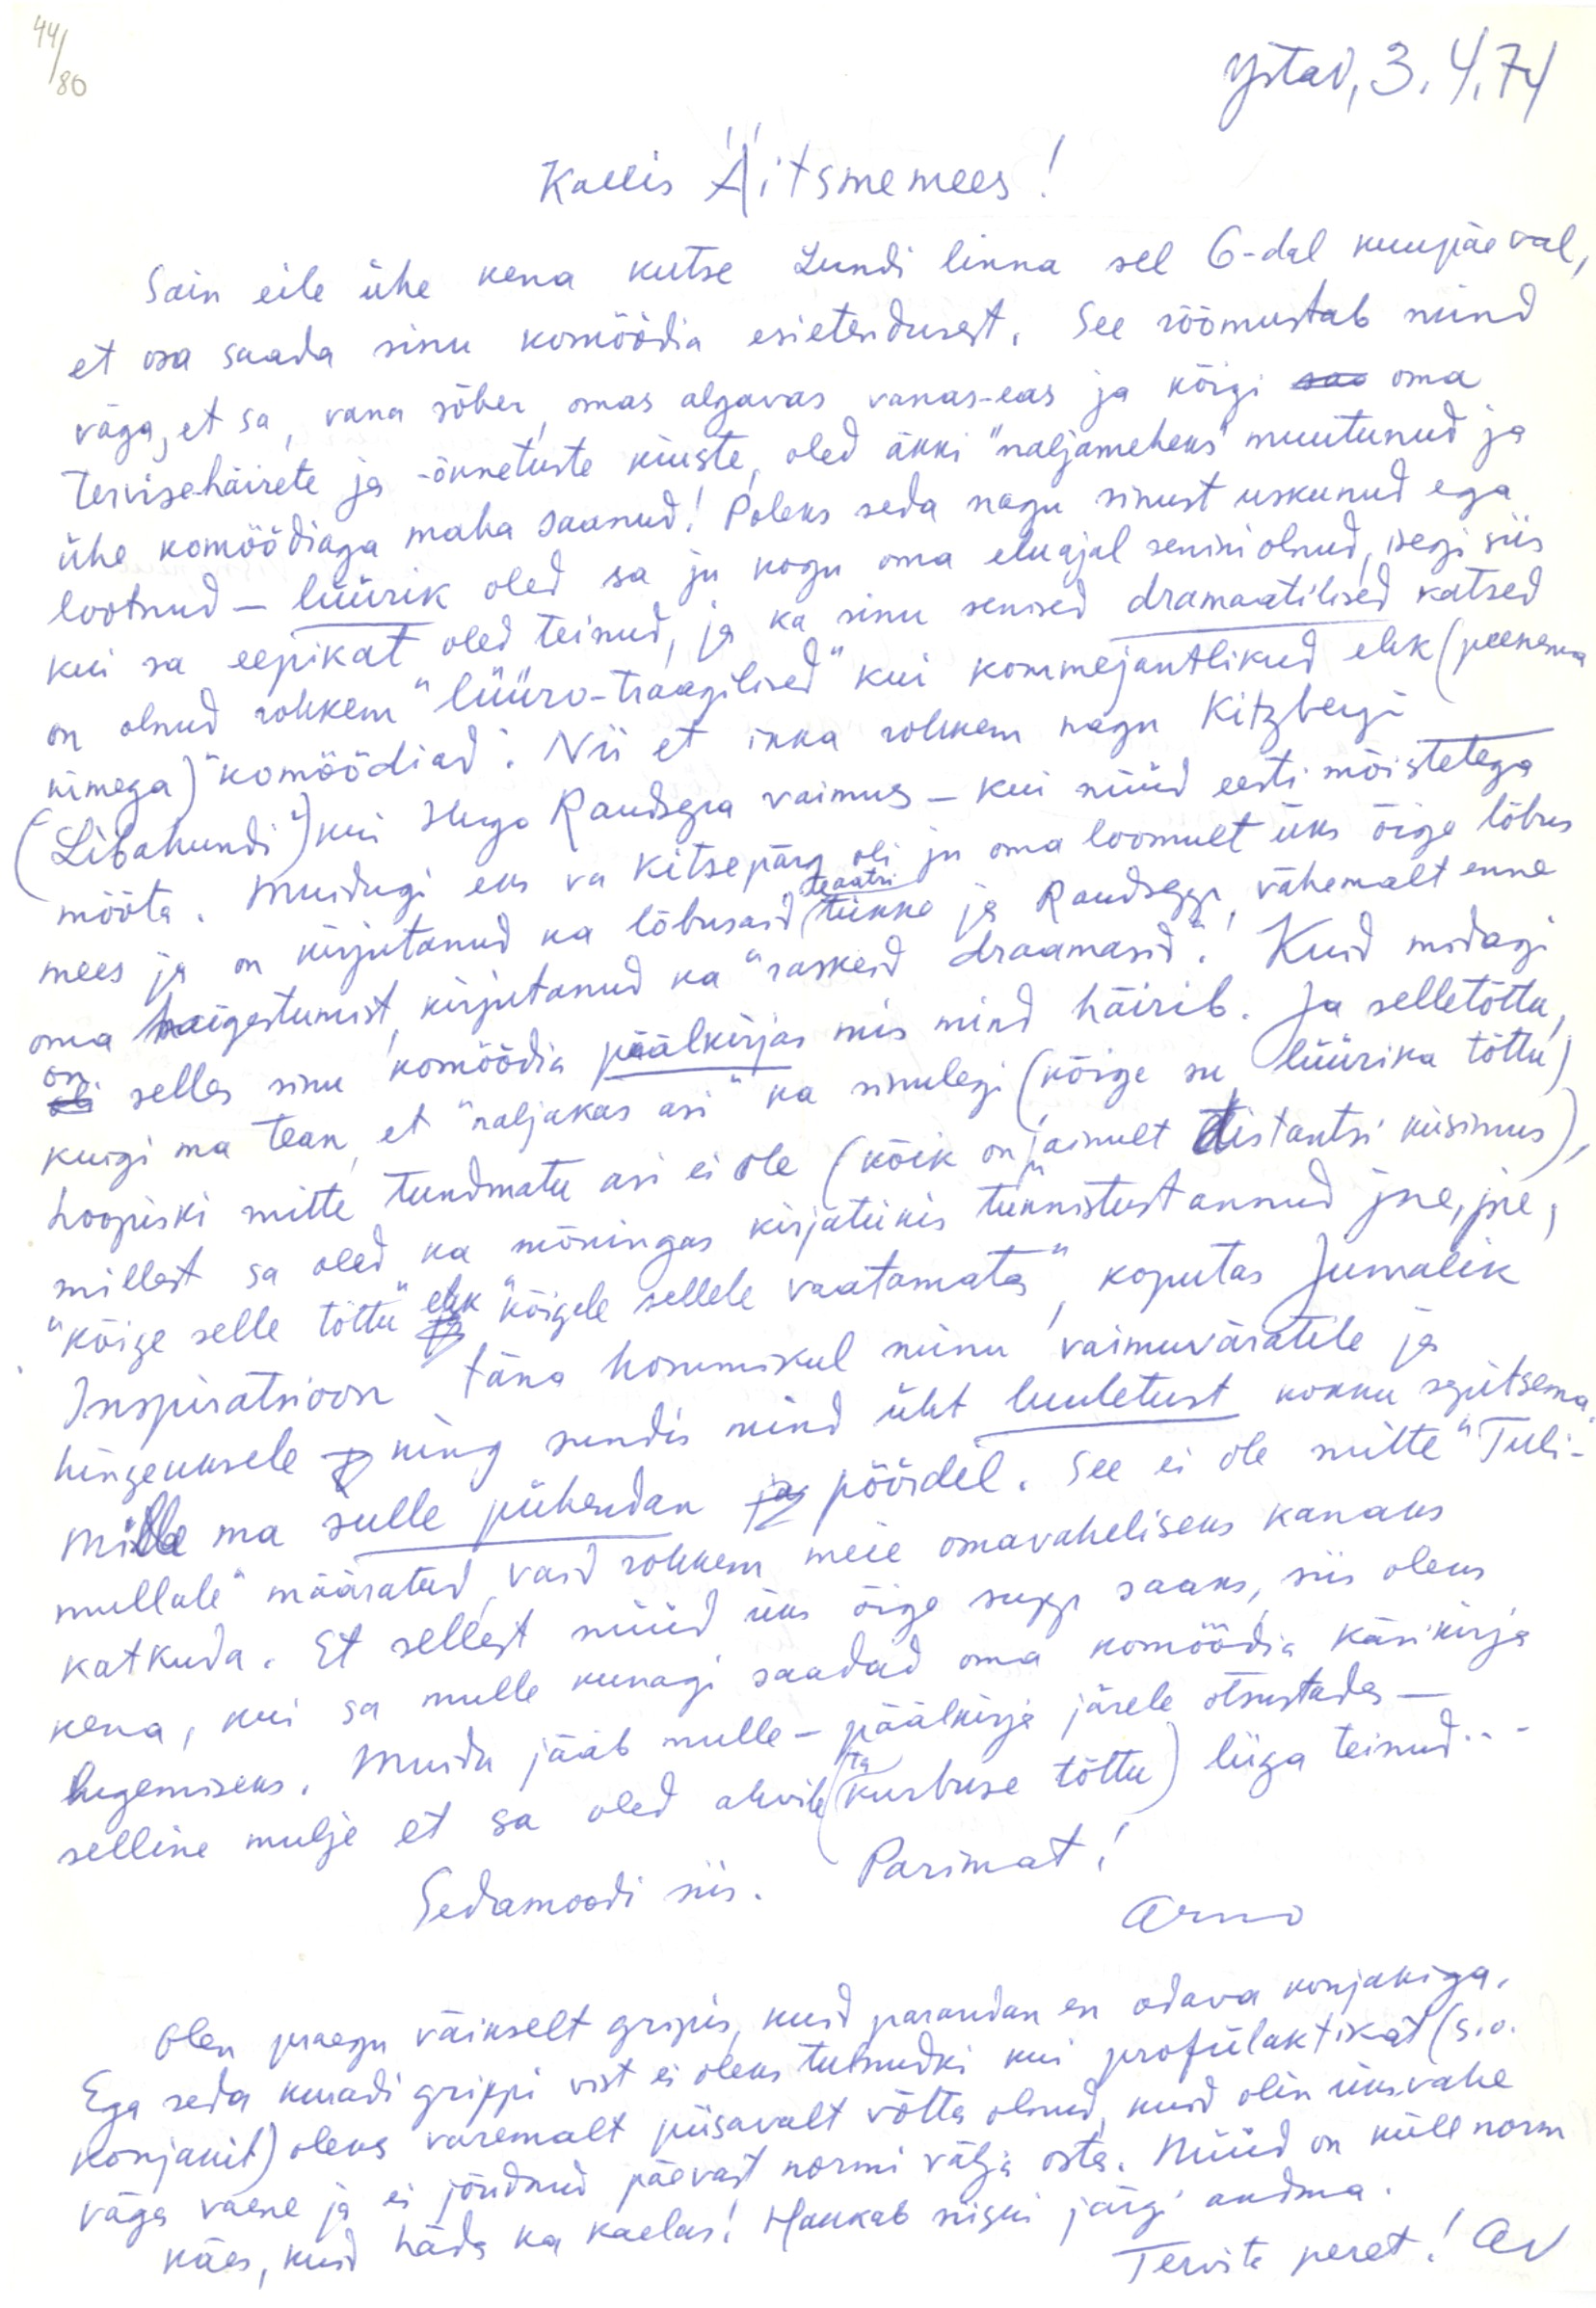 44/80
Ystad, 3.4.74
Kallis Äitsmemees!
Sain eile ühe kena kutse Lundi linna sel 6-dal kuupäeval,
et osa saada sinu komöödia esietendusest. See rõõmustab mind
väga, et sa, vana sõber, omas algavas vanas-eas ja kõigi sao oma
tervise-häirete ja -õnnetuste kiuste, oled äkki "naljameheks" muutunud ja
ühe komöödiaga maha saanud! Poleks seda nagu sinust uskunud ega
lootnud – lüürik oled sa ju kogu oma eluajal senini olnud, isegi siis
kui sa eepikat oled teinud, ja ka sinu senised dramaatilised katsed
on olnud rohkem "lüüro-traagilised" kui kommejantlikud ehk (peenema
nimega) "komöödiad". Nii et ikka rohkem nagu Kitzbergi
("Libahundi") kui Hugo Raudsepa vaimus – kui nüüd eesti mõistetega
mõõta. Muidugi eks va Kitsepärg oli ju oma loomult üks õige lõbus
mees ja on kirjutanud ka lõbusaid teatri tükke ja Raudsepp, vähemalt enne
oma haigestumist, kirjutanud ka "raskeid draamasid". Kuid midagi
oli on selles sinu komöödia päälkirjas mis mind häirib. Ja selletõttu,
kuigi ma tean, et "naljakas asi" ka sinulegi (kõige su lüürika tõttu)
hoopiski mitte tundmatu asi ei ole (kõik on jainult distantsi küsimus),
millest sa oled ka mõningas kirjatükis tunnistust annud jne, jne,
"kõige selle tõttu" ja ehk "kõigele sellele vaatamata", koputas Jumalik
Inspiratsioon täna hommikul minu vaimuväratile ja
hingeuksele ja ning sundis mind üht luuletust kokku sepitsema,
mille ma sulle pühendan ja pöördel. See ei ole mitte "Tuli-
mullale" määratud, vaid rohkem meie omavaheliseks kanaks
katkuda. Et sellest nüüd üks õige supp saaks, siis oleks
kena, kui sa mulle kunagi saadad oma komöödia käsikirja
lugemiseks. Muidu jääb mulle – päälkirja järele otsustades –
selline mulje et sa oled ahvile (ta kurbuse tõttu) liiga teinud...
Sedamoodi siis. Parimat!
Arno
Olen praegu väikselt gripis, kuid parandan en odava konjakiga.
Ega seda kuradi grippi vist ei oleks tulnudki kui profülaktikat (s.o.
konjakit) oleks varemalt piisavalt võtta olnud, kuid olin üksvahe
väga vaene ja ei jõudnud päevast normi välja osta. Nüüd on küll norm
käes, kuid häda ka kaelas! Hakkab siiski järgi andma.
Tervita peret! AV